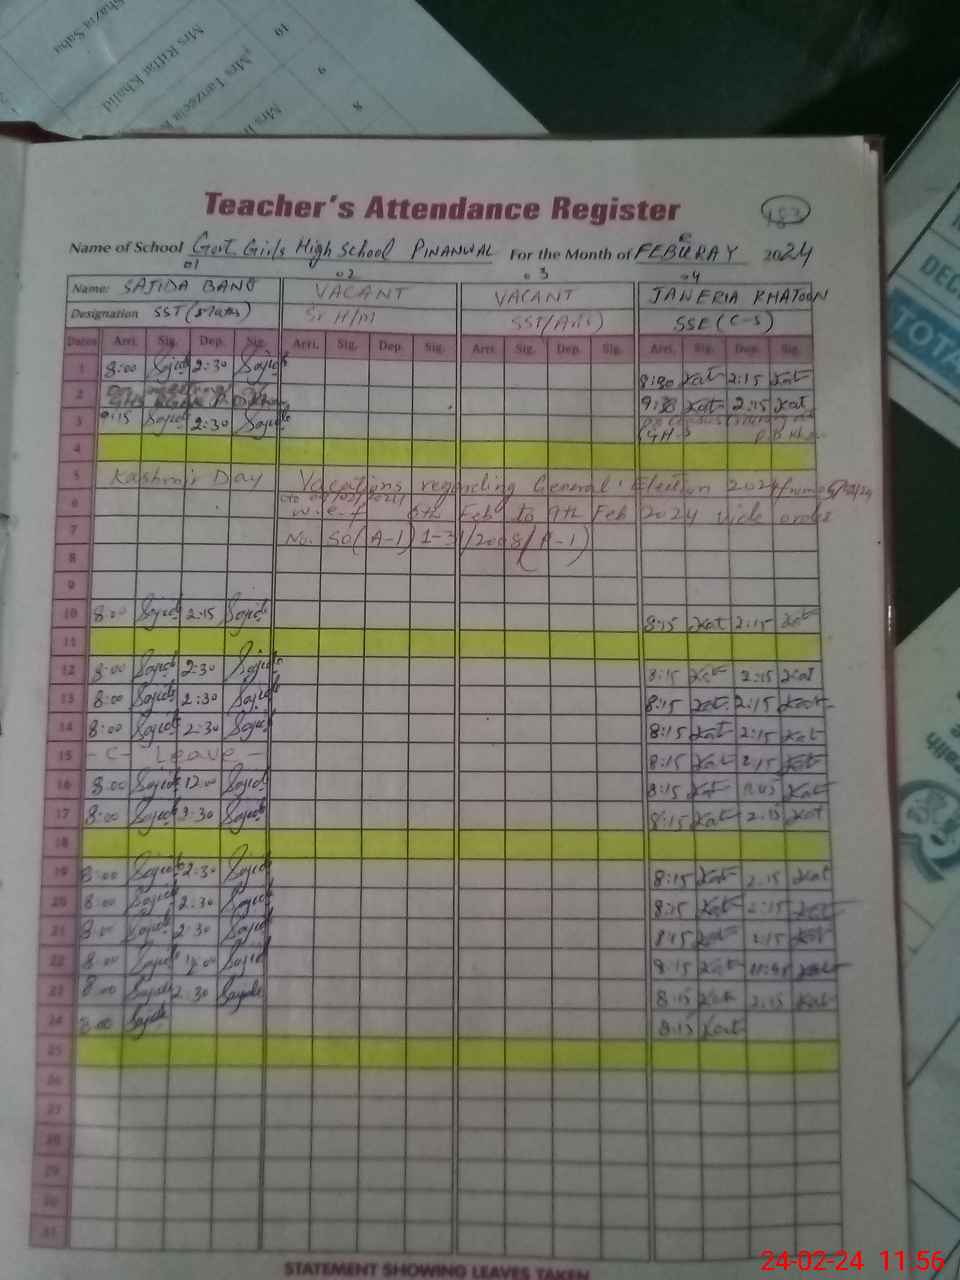 Shazia Saba
Mrs Riffat Khalid
Mrs Tanzeela
10
9
8
Teacher's Attendance Register
153
Name of School Govt. Girls High School PINANWAL For the Month of FEBURAY 2024
01 02 03 04
Name: SAJIDA BANO VACANT VACANT JAWERIA KHATOON
Designation SST (Maths) Sr H/M SST(Arts) SSE (C-S)
Dates Arri. Sig. Dep. Sig. Arri. Sig. Dep. Sig. Arri. Sig. Dep. Sig. Arri. Sig. Dep. Sig.
1 8:00 Sajida 2:30 Sajida 8:30 Kat 2:15 Kat
2 9:30 Kat 2:15 Kat
3 9:15 Sajida 2:30 Sajida
4
5 Kashmir Day Vacations regarding General Election 2024 from
6 w.e.f 6th Feb to 9th Feb 2024 vide order
7 No. SO(A-1) 1-31/2008(P-1)
8
9
10 8:00 Sajida 2:15 Sajida 8:15 Kat 2:15 Kat
11
12 8:00 Sajida 2:30 Sajida 8:15 Kat 2:15 Kat
13 8:00 Sajida 2:30 Sajida 8:15 Kat 2:15 Kat
14 8:00 Sajida 2:30 Sajida 8:15 Kat 2:15 Kat
15 - C - Leave - 8:15 Kat 2:15 Kat
16 8:00 Sajida 12:00 Sajida 8:15 Kat 11:45 Kat
17 8:00 Sajida 2:30 Sajida 8:15 Kat 2:15 Kat
18
19 8:00 Sajida 2:30 Sajida 8:15 Kat 2:15 Kat
20 8:00 Sajida 2:30 Sajida 8:15 Kat 2:15 Kat
21 8:00 Sajida 2:30 Sajida 8:15 Kat 2:15 Kat
22 8:00 Sajida Sajida 8:15 Kat 11:45 Kat
23 8:00 Sajida 2:30 Sajida 8:15 Kat 2:15 Kat
24 8:00 Sajida 8:15 Kat
25
26
27
28
29
30
31
STATEMENT SHOWING LEAVES TAKEN
DEC
TOTA
24-02-24 11.56